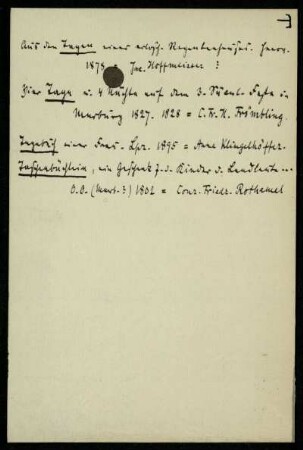 Aus den Tagen eines erlosch. Regentenhauses. Hann.
1878 = Jac. Hoffmeister ?
Vier Tage u. 4 Nächte auf dem 3. Säcul. Feste in
Marburg 1827. 1828 = C. Fr. H. Frömbling.
Tagebuch einer Frau. Lpz. 1895 = Anna Klingelhöffer.
Taschenbüchlein, ein Geschenk f. d. Kinder d. Landleute ...
O. O. (Marb. ?) 1802 = Conr. Friedr. Rothamel